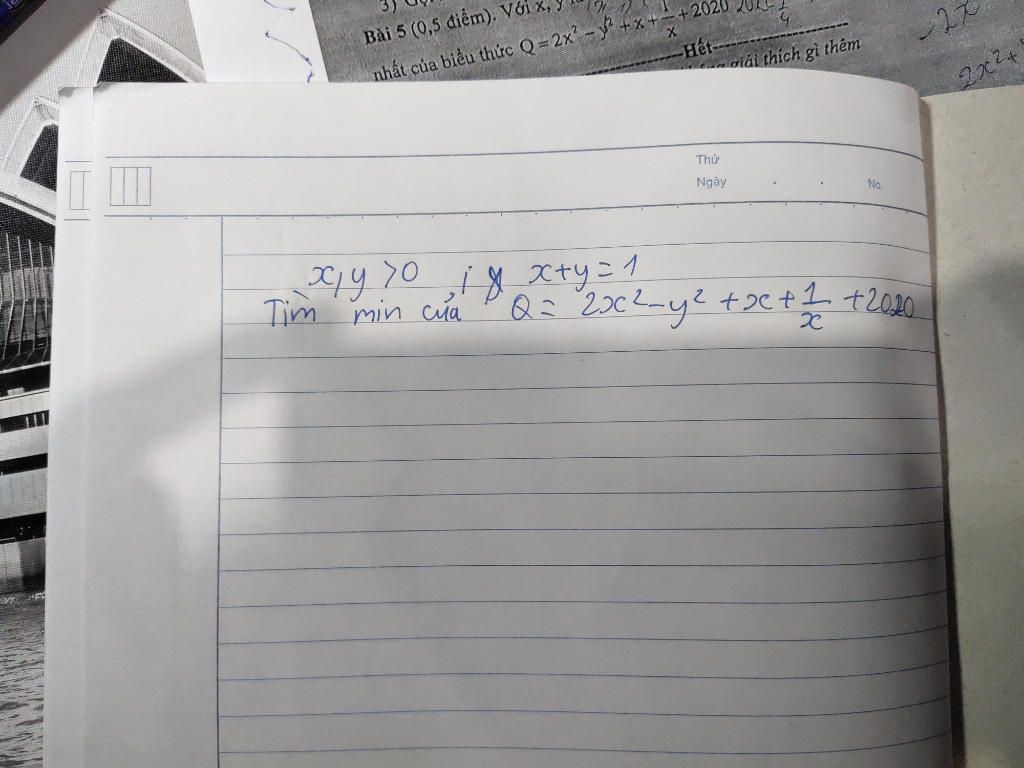 Bài 5 (0,5 điểm). Với x, y
nhất của biểu thức Q = 2x² - y² + x + 1/x + 2020
Hết
giải thích gì thêm
2x
2x² +
Thứ
Ngày . . No.
x, y > 0 ; x + y = 1
Tìm min của Q = 2x² - y² + x + 1/x + 2020